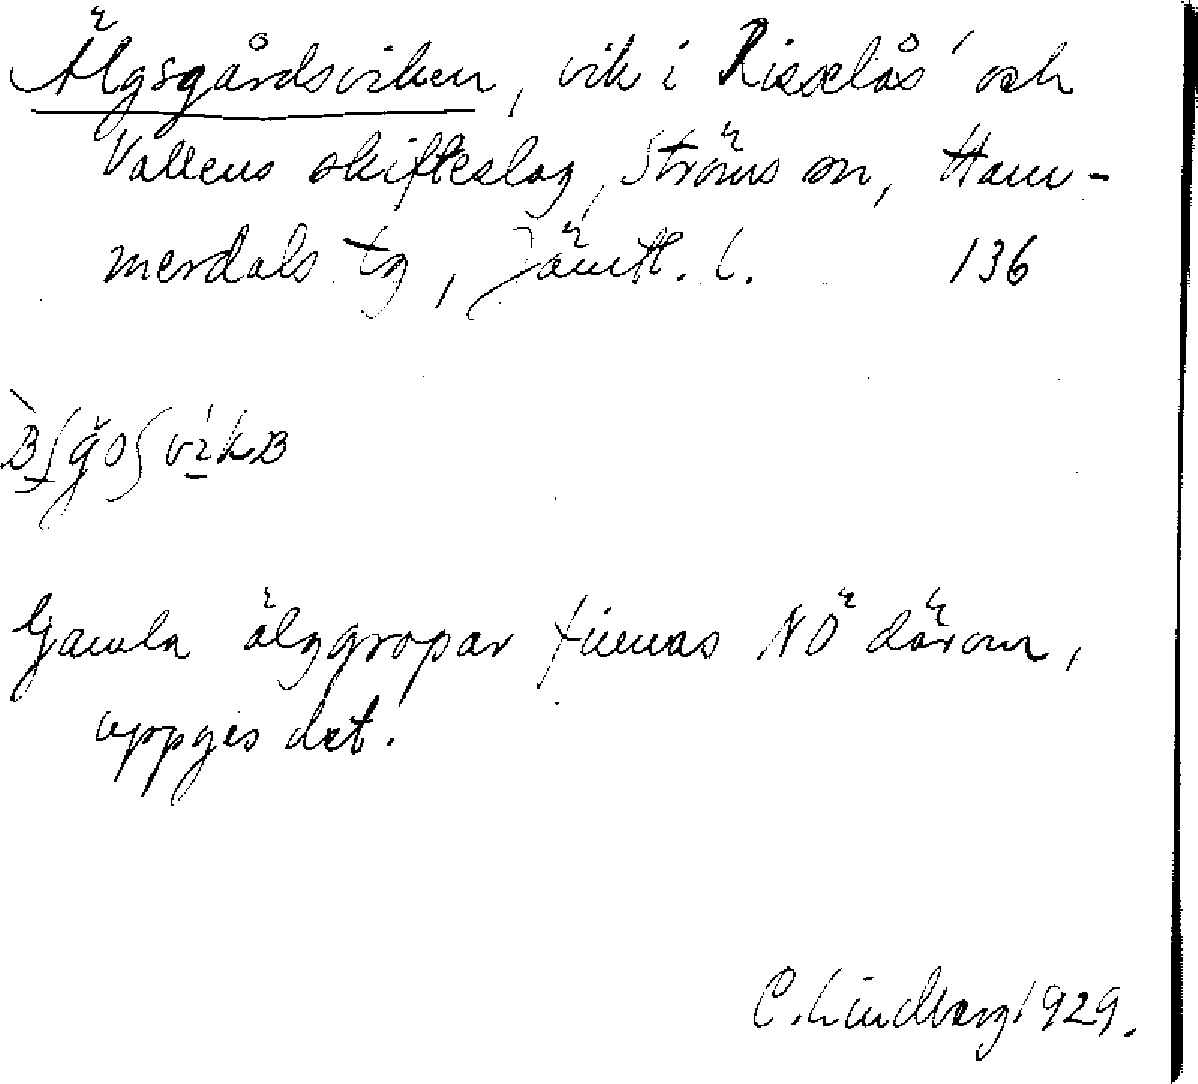 Älgsgårdsviken, vik i Risselås' och
Vallens skifteslag, Ströms sn, Ham-
merdals tg, Jämtl. l. 136
Gamla älggropar finnas NÖ därom,
uppges det.
C. Lindberg 1929.